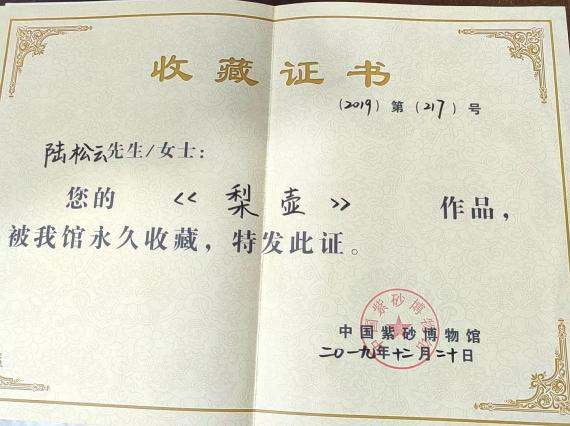 收藏证书
(2019)第(217)号
陆松云先生/女士:
您的《梨壶》作品,
被我馆永久收藏,特发此证。
中国紫砂博物馆
中国紫砂博物馆
二〇一九年十二月二十日